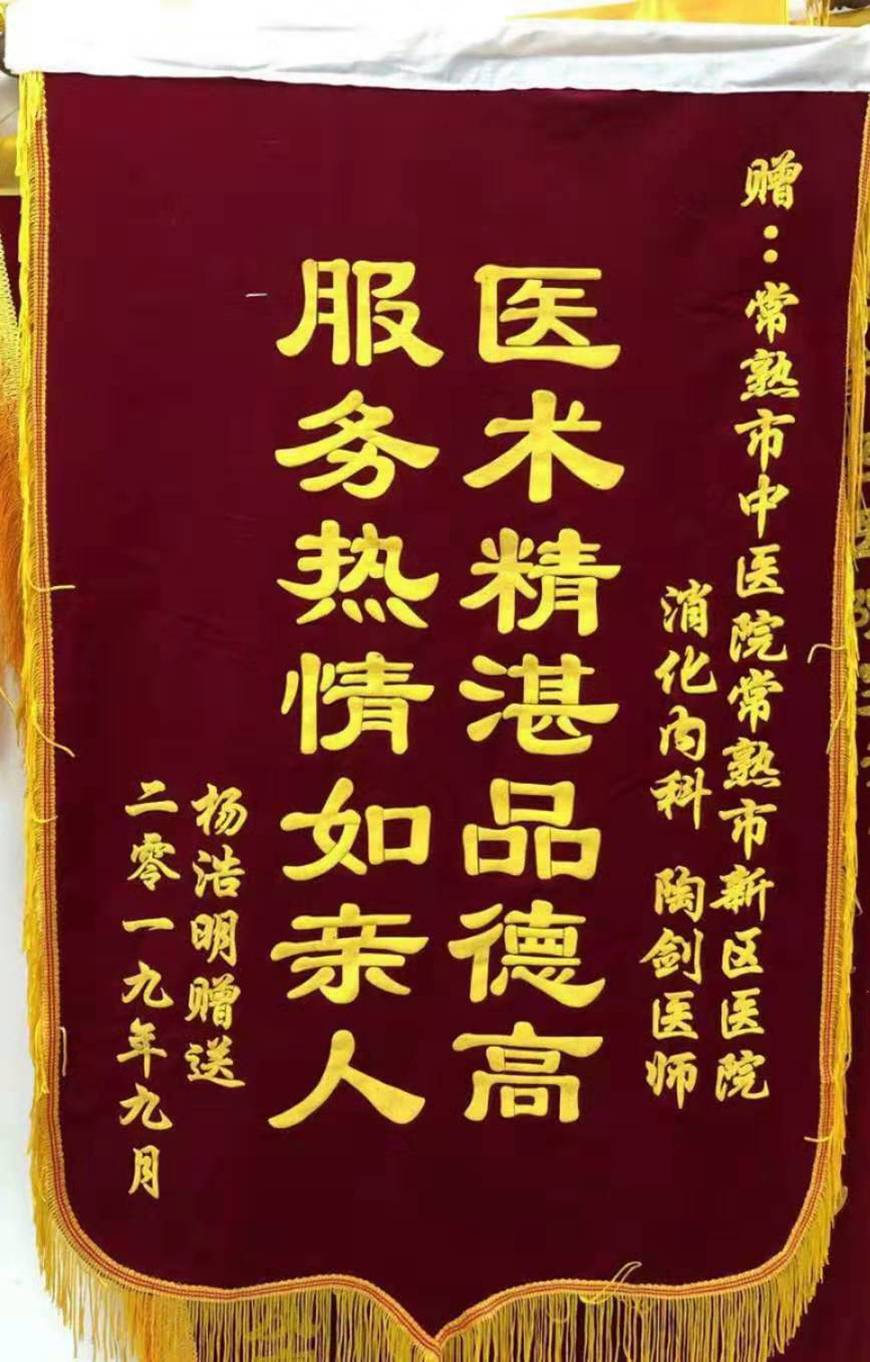 赠：常熟市中医院常熟市新区医院
消化内科 陶剑医师
医术精湛品德高
服务热情如亲人
杨浩明赠送
二零一九年九月